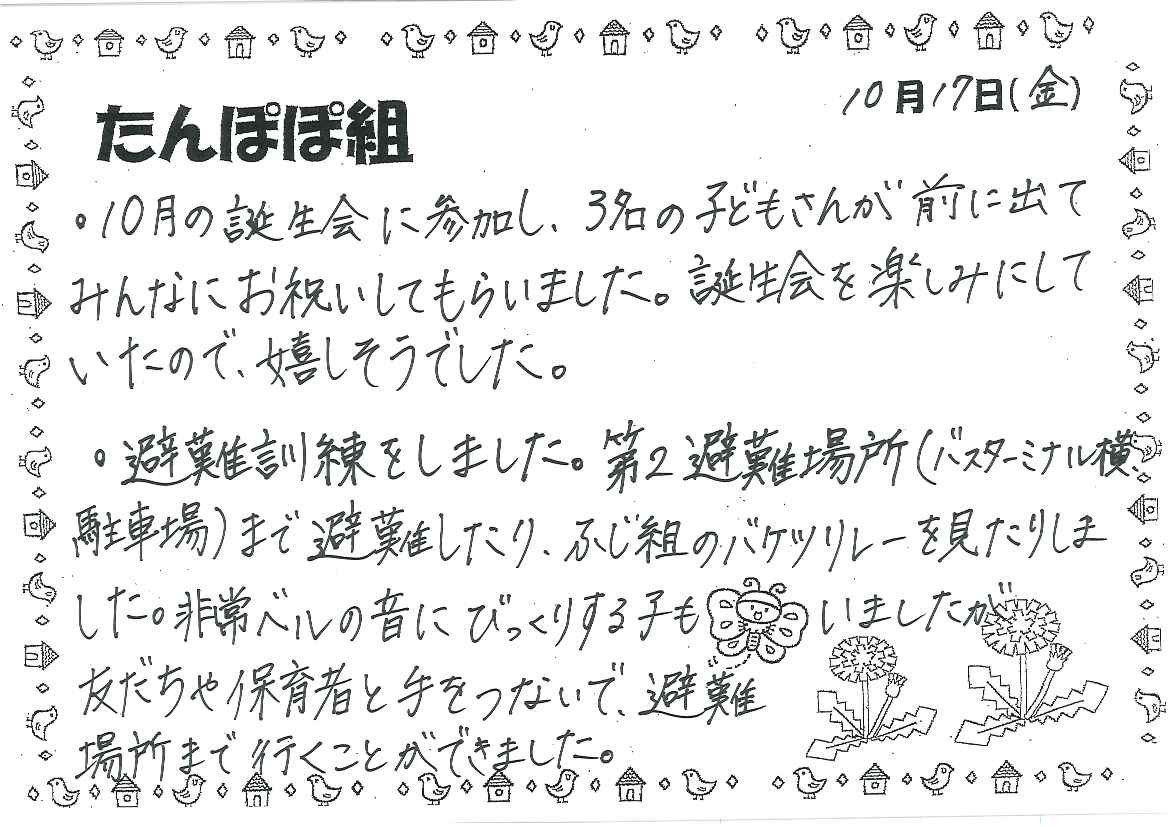 10月17日(金)
たんぽぽ組
。10月の誕生会に参加し、3名の子どもさんが前に出て
みんなにお祝いしてもらいました。誕生会を楽しみにして
いたので、嬉しそうでした。
。避難訓練をしました。第2避難場所(バスターミナル横
駐車場)まで避難したり、ふじ組のバケツリレーを見たりしま
した。非常ベルの音にびっくりする子もいましたが
友だちや保育者と手をつないで、避難
場所まで行くことができました。